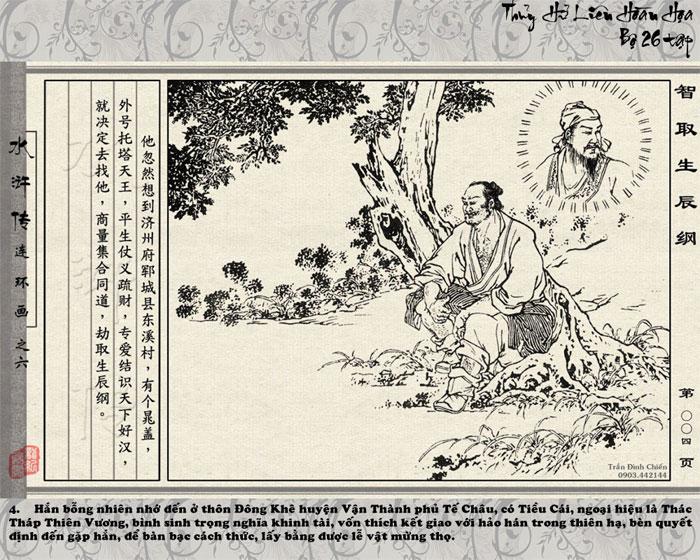 Thủy Hử Liên Hoàn Họa
Bộ 26 tập
智取生辰纲
第〇〇四页
他忽然想到济州府郓城县东溪村，有个晁盖，
外号托塔天王，平生仗义疏财，专爱结识天下好汉，
就决定去找他，商量集合同道，劫取生辰纲。
水浒传连环画之六
Trần Đình Chiến
0903.442144
4. Hắn bỗng nhiên nhớ đến ở thôn Đông Khê huyện Vận Thành phủ Tế Châu, có Tiều Cái, ngoại hiệu là Thác
Tháp Thiên Vương, bình sinh trọng nghĩa khinh tài, vốn thích kết giao với hảo hán trong thiên hạ, bèn quyết
định đến gặp hắn, để bàn bạc cách thức, lấy bằng được lễ vật mừng thọ.